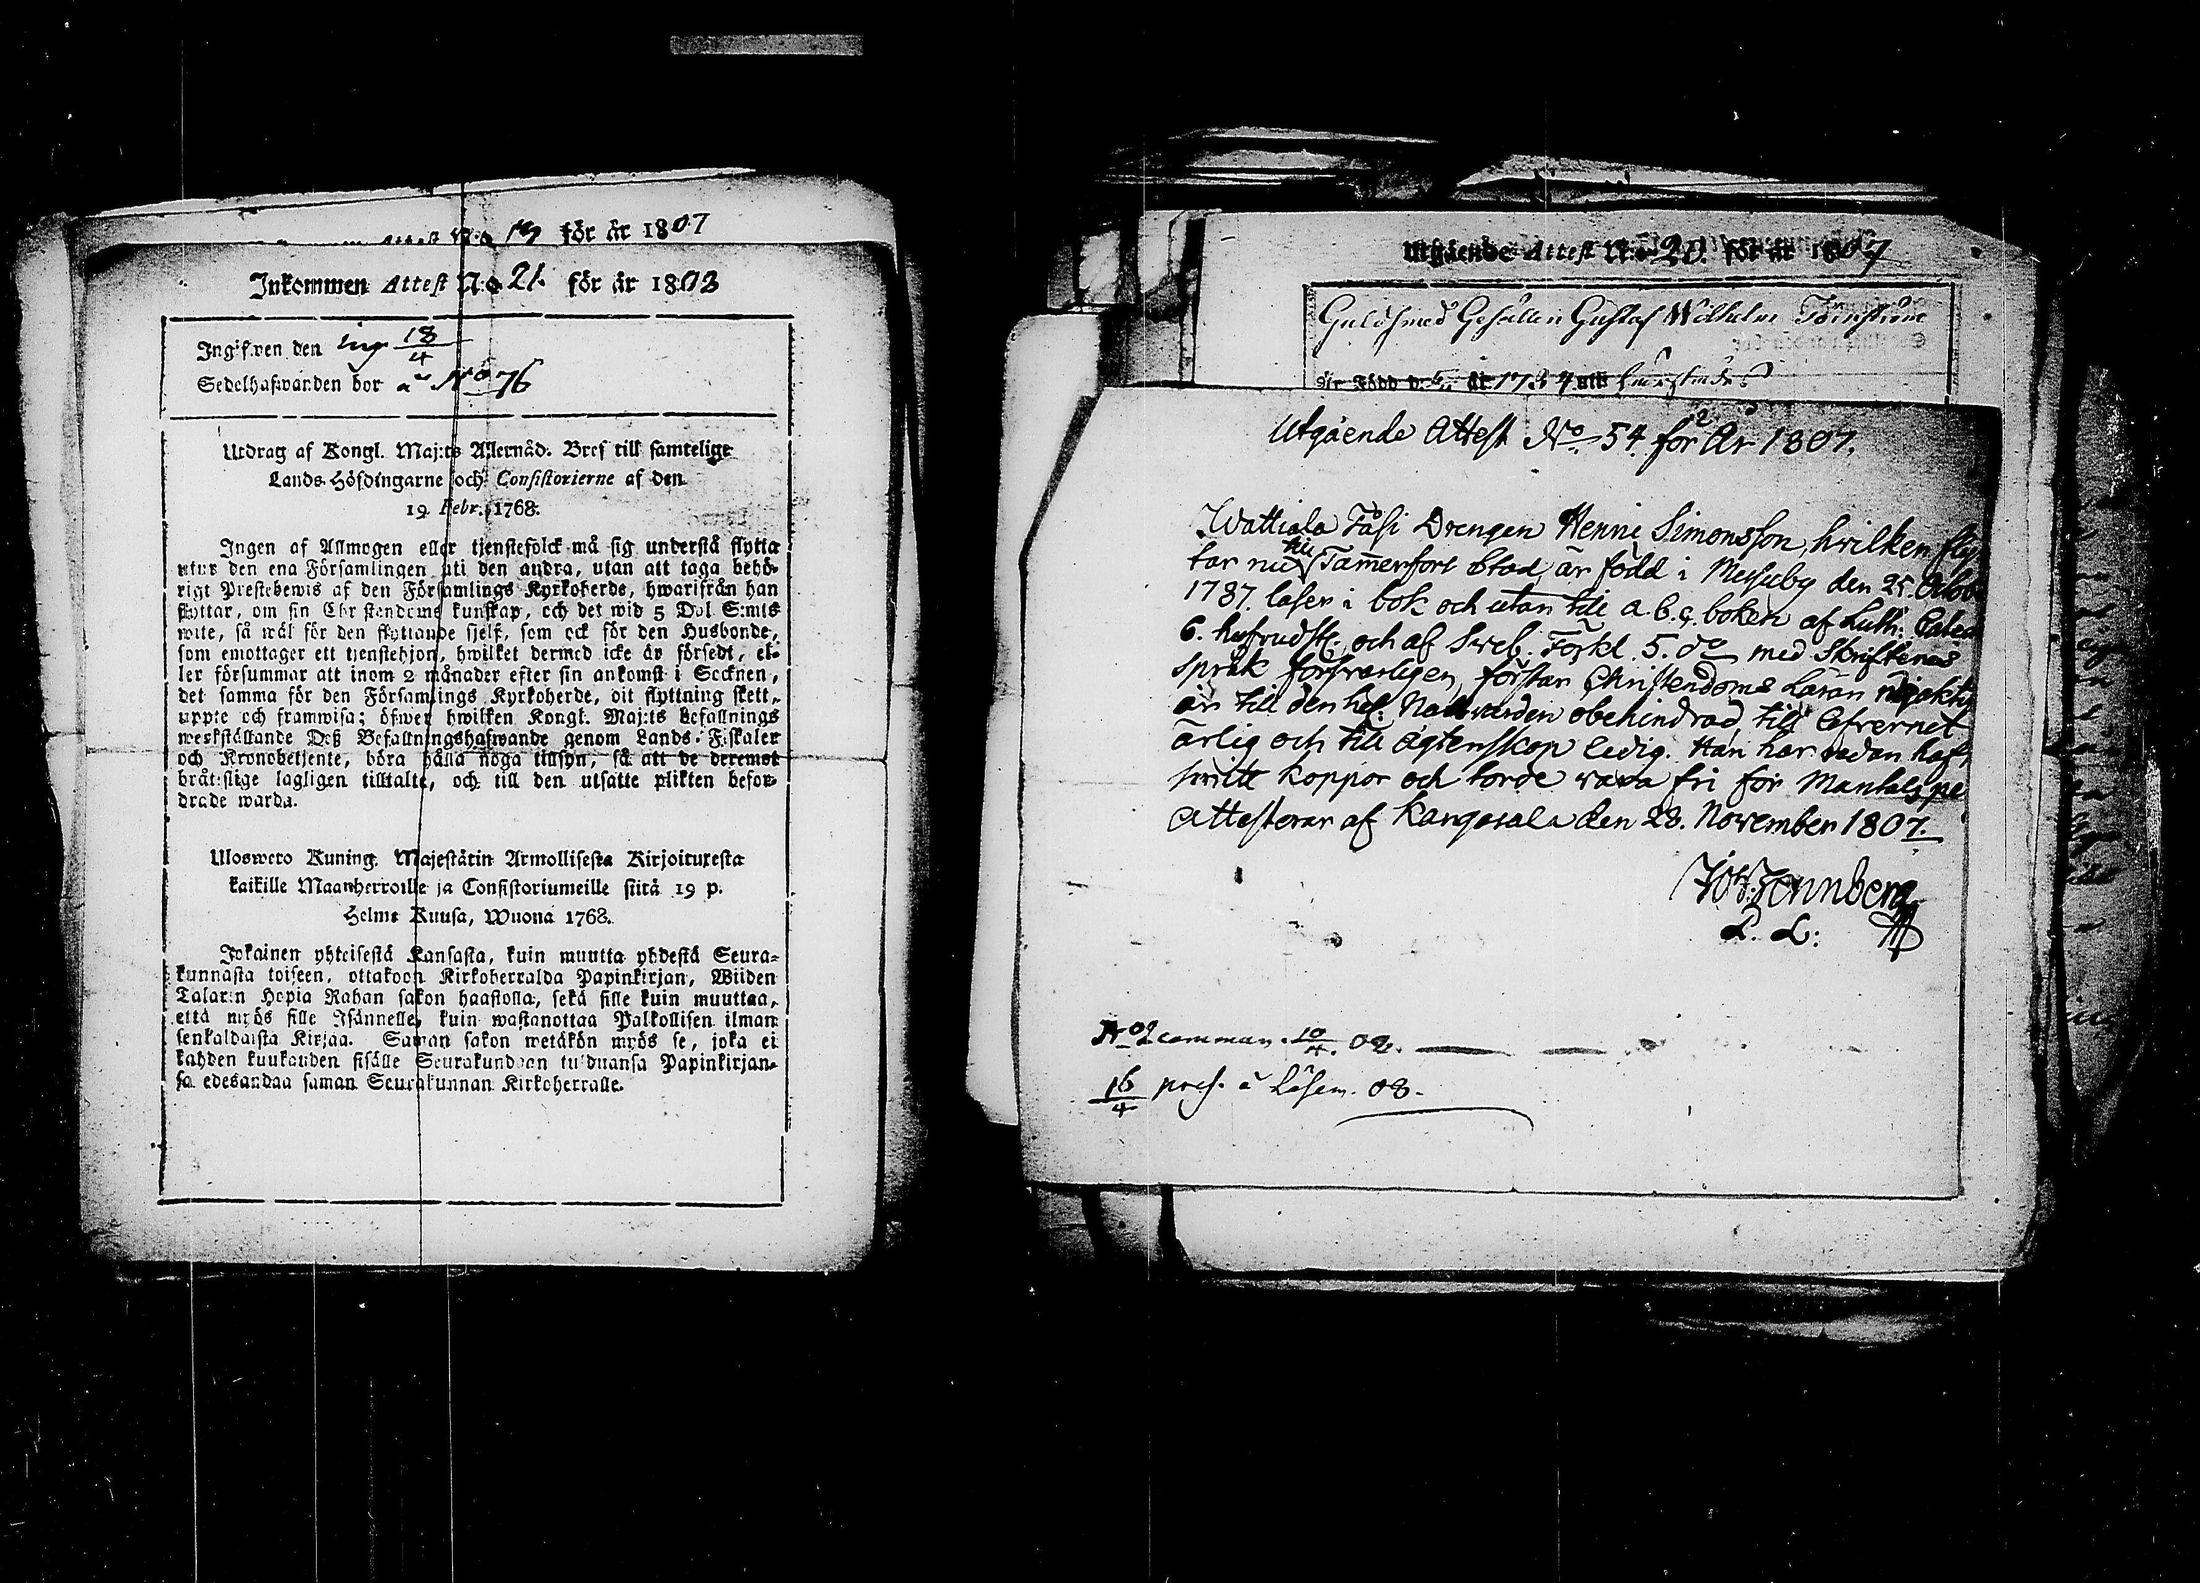 Attest N:o 19 för år 1807
Inkommen Attest N:o 21. för år 1808
Ingifwen den ing 18/4
Sedelhafwanden bor å No 76
Utdrag af Kongl. Maj:ts Allernåd. Bref till samtelige
Lands-Höfdingarne och Consistorierne af den
19 Febr. 1768.
Ingen af Allmogen eller tjenstefolck må sig understå flytta
utur den ena Församlingen uti den andra, utan att taga behö-
rigt Prestebewis af den Församlings Kyrkoherde, hwarifrån han
flyttar, om sin Christendoms kunskap, och det wid 5 Dal. S:mts
wite, så wäl för den flyttande sjelf, som ock för den Husbonde,
som emottager ett tjenstehjon, hwilket dermed icke är försedt, el-
ler försummar att inom 2 månader efter sin ankomst i Socknen,
det samma för den Församlings Kyrkoherde, dit flyttning skett,
uppte och framwisa; öfwer hwilken Kongl. Maj:ts befallnings
werkställande Deß Befallningshafwande genom Lands-Fiskaler
och Kronobetjente, böra hålla noga tillsyn, så att de deremot
bråtslige lagligen tilltalte, och till den utsatte plikten befor-
drade warda.
Uloswero Kuning. Majestätin Armollisesta Kirjoituresta
kaikille Maanherroille ja Consistoriumeille siitä 19 p.
Helme Kuusa, Wuona 1768.
Jokainen yhteisestä Kansasta, kuin muutta yhdestä Seura-
kunnasta toiseen, ottakoon Kirkoherralda Papinkirjan, Wiiden
Talarin Hopia Rahan sakon haastolla, sekä sille kuin muuttaa,
että myös sille Isännelle, kuin wastanottaa Palkollisen ilman
senkaldaista Kirjaa. Saman sakon wetäkön myös se, joka ei
kahden kuukauden sisälle Seurakundaan tulduansa Papinkirjan-
sa edesandaa saman Seurakunnan Kirkoherralle.
Utgående Attest N:o 20. för år 1807
Guldsmed Gesällen Gustaf Wilhelm
Är Född d. år 1784 uti
Utgående Attest No. 54. för År 1807.
Wattiala Påsi Drengen Henric Simonsson, hvilken flyt
tar nu till Tamerfors Stad, är född i Messuby den 25. Octob
1787. läser i bok och utan till a.b.c. boken af Luth: Catec
6. hufvudst: och af Sveb: Förkl. 5. do med Skriftenes
språk försvarligen, förstår Christendoms Läran nöjaktig
är till den hel: Nattvarden obehindrad, till lefvernet
ärlig och till ägtenskap ledig. Han har redan haft
koppor och torde vara fri för Mantals pe
Attesterar af Kangasala den 28. November 1807.
P. L:
No 2 comman. 10/4. 08.
16/4 pres. å Läsem. 08.